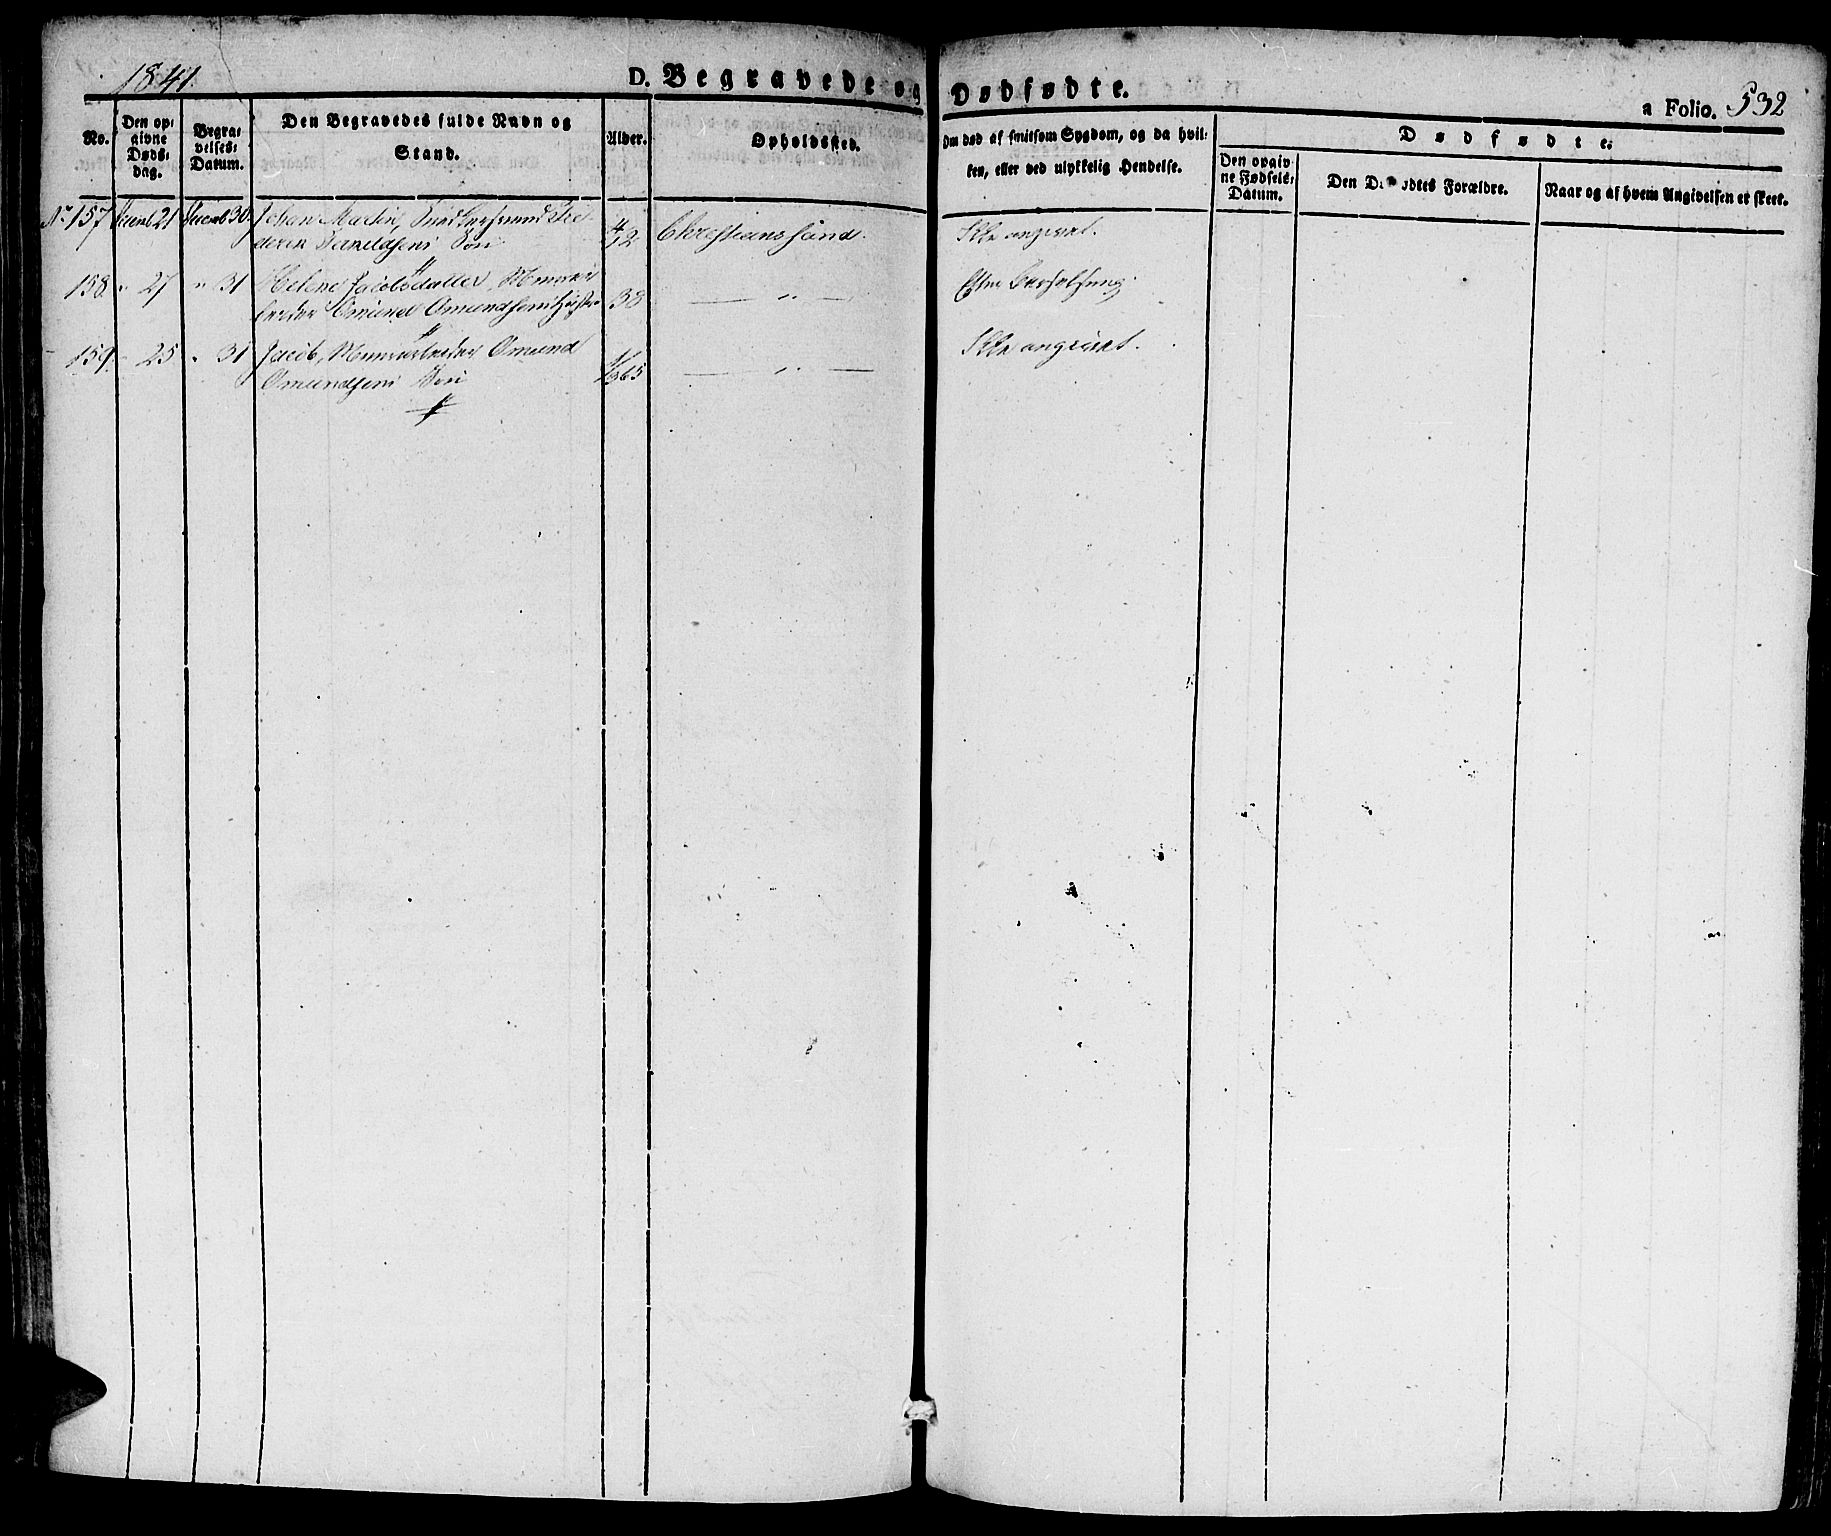 1841.
D. Begravede og Dødfødte.
a Folio. 532
No.
Den op-
givne
Døds-
dag.
Begra-
velses-
Datum.
Den Begravedes fulde Navn og
Stand.
Alder.
Opholdssted.
Om død af smitsom Sygdom, og da hvil-
ken, eller ved ulykkelig Hendelse.
Dødfødte.
Den opgiv-
ne Fødsels-
Datum.
Den D dtes Forældre.
Naar og af hvem Angivelsen er skeet.
No 157 21 30 Johan Martin,
Søn 4/12 Christianssand. Ikke angivet.
158 " 27 " 31 Helene Jacobsdatter,
Omund Omundsens 38 — " — Efter
159. " 25 " 31 Jacob, Omund
Omundsens Søn 4/365 — " — Ikke angivet.